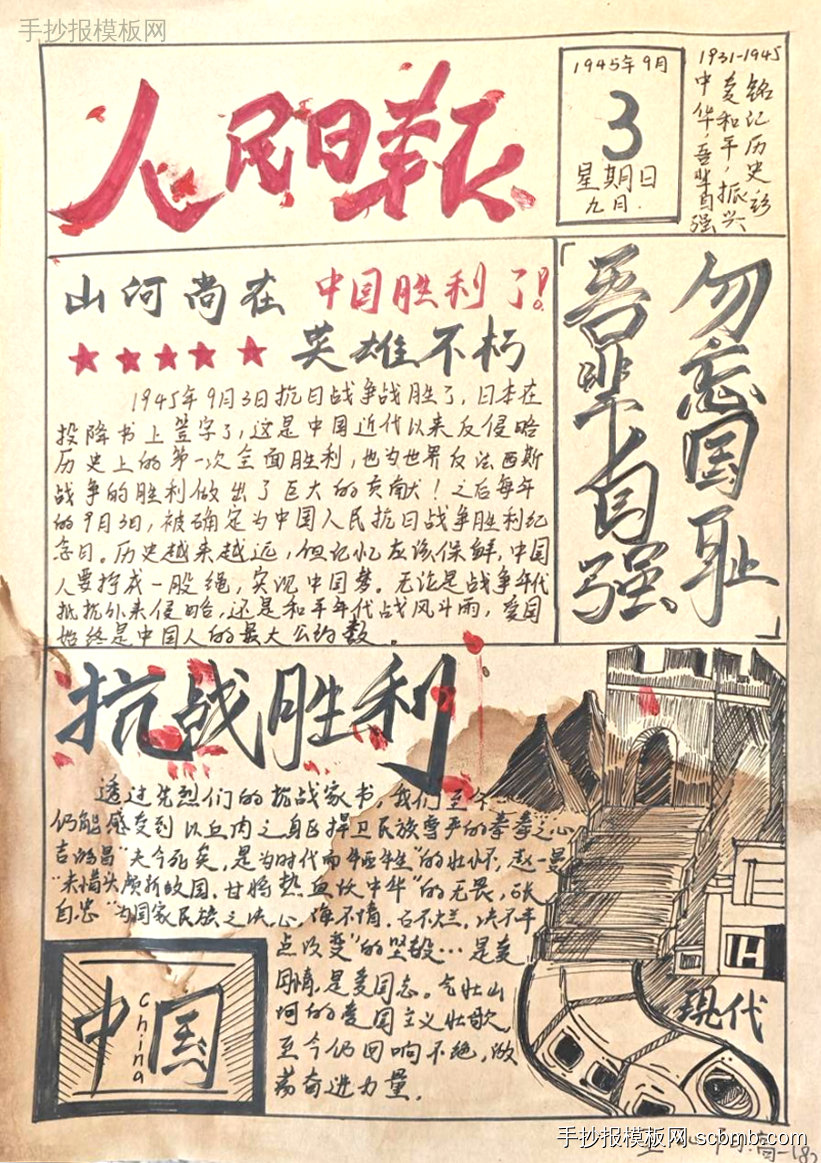 手抄报模板网
人民日報
1945年9月
3
星期日
九月.
1931-1945
铭记历史珍
爱和平,振兴
中华,吾辈自强
山河尚在 中国胜利了!
英雄不朽
1945年9月3日抗日战争战胜了,日本在
投降书上签字了,这是中国近代以来反侵略
历史上的第一次全面胜利,也为世界反法西斯
战争的胜利做出了巨大的贡献!之后每年
的9月3日,被确定为中国人民抗日战争胜利纪
念日。历史越来越远,但记忆应该保鲜,中国
人要拧成一股绳,实现中国梦。无论是战争年代
抵抗外来侵略,还是和平年代战风斗雨,爱国
始终是中国人的最大公约数。
「勿忘国耻
吾辈自强」
抗战胜利
透过先烈们的抗战家书,我们至今
仍能感受到以血肉之身区捍卫民族尊严的拳拳之心
吉鸿昌"夫今死矣,是为时代而牺牲"的壮怀,赵一曼
"未惜头颅新故国,甘将热血沃中华"的无畏,张
自忠"为国家民族之决心,海不清,石不烂,决不半
点改变"的坚毅…是爱
国情,是爱国志。气壮山
河的爱国主义壮歌,
至今仍回响不绝,激
荡奋进力量.
中国
China
现代
手抄报模板网 scbmb.com